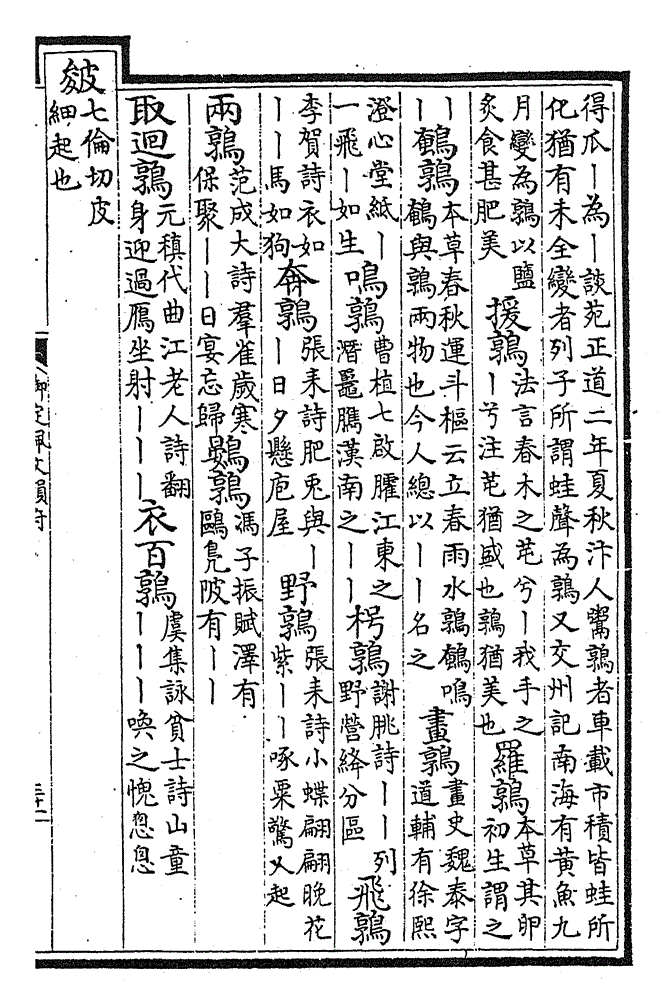 得瓜丨為丨談苑正道二年夏秋汴人鬻鶉者車載市積皆蛙所
化猶有未全變者列子所謂蛙聲為鶉又交州記南海有黃魚九
月變為鶉以鹽炙食甚肥美 援鶉 法言春木之芚兮丨我手之丨兮注芚猶盛也鶉猶美也 羅鶉 本草其卵初生謂之
丨丨 鵪鶉 本草春秋運斗樞云立春雨水鶉鵪鳴鵪與鶉兩物也今人總以丨丨名之 畫鶉 畫史魏泰字道輔有徐熙
澄心堂紙丨一飛丨如生 鳴鶉 曹植七啟臛江東之潛鼉臇漢南之丨丨 枵鶉 謝脁詩丨丨列野營絳分區 飛鶉
李賀詩衣如丨丨馬如狗 奔鶉 張耒詩肥兎與丨丨日夕懸庖屋 野鶉 張耒詩小蝶翩翩晚花紫丨丨啄粟驚又起
兩鶉 范成大詩羣雀歲寒保聚丨丨日宴忘歸 鷃鶉 馮子振賦澤有鷗鳧陂有丨丨
取迴鶉 元稹代曲江老人詩翻身迎過鴈坐射丨丨丨 衣百鶉 虞集詠貧士詩山童丨丨丨喚之愧怱怱
皴 七倫切皮細起也
御定佩文韻府